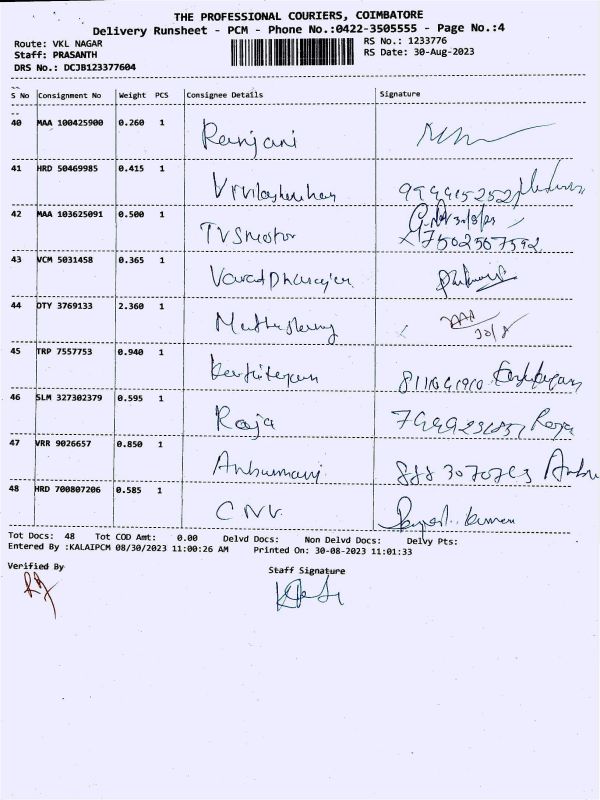 THE PROFESSIONAL COURIERS, COIMBATORE
Delivery Runsheet - PCM - Phone No.:0422-3505555 - Page No.:4
Route: VKL NAGAR
RS No.: 1233776
Staff: PRASANTH
RS Date: 30-Aug-2023
DRS No.: DCJB123377604
S No Consignment No Weight PCS Consignee Details Signature
40 MAA 100425900 0.260 1 Ranjani
41 HRD 50469985 0.415 1
42 MAA 103625091 0.500 1 7502567592
43 VCM 5031458 0.365 1
44 OTY 3769133 2.360 1 30/8
45 TRP 7557753 0.940 1
46 SLM 327302379 0.595 1 Raja Raja
47 VRR 9026657 0.850 1 Anbumani
48 HRD 700807206 0.585 1
Tot Docs: 48 Tot COD Amt: 0.00 Delvd Docs: Non Delvd Docs: Delvy Pts:
Entered By :KALAIPCM 08/30/2023 11:00:26 AM Printed On: 30-08-2023 11:01:33
Verified By
Staff Signature